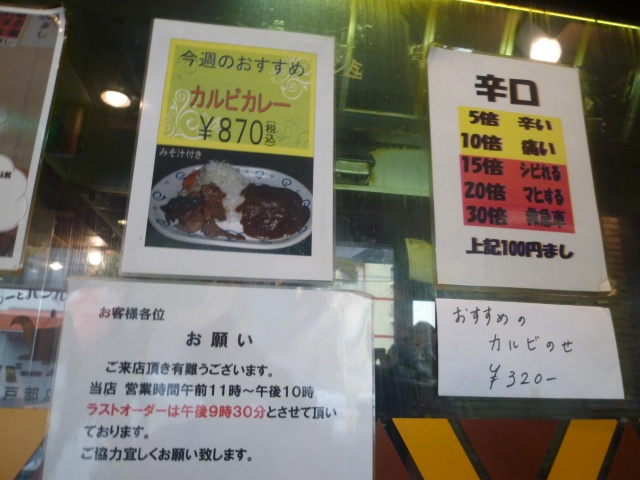 今週のおすすめ
カルビカレー
￥870(税込)
みそ汁付き
辛口
5倍 辛い
10倍 痛い
15倍 シビれる
20倍 マヒする
30倍 救急車
上記100円まし
おすすめの
カルビのせ
￥320-
お客様各位
お願い
ご来店頂き有難うございます。
当店 営業時間午前11時～午後10時
ラストオーダーは午後9時30分とさせて頂い
ております。
ご協力宜しくお願い致します。
戸部